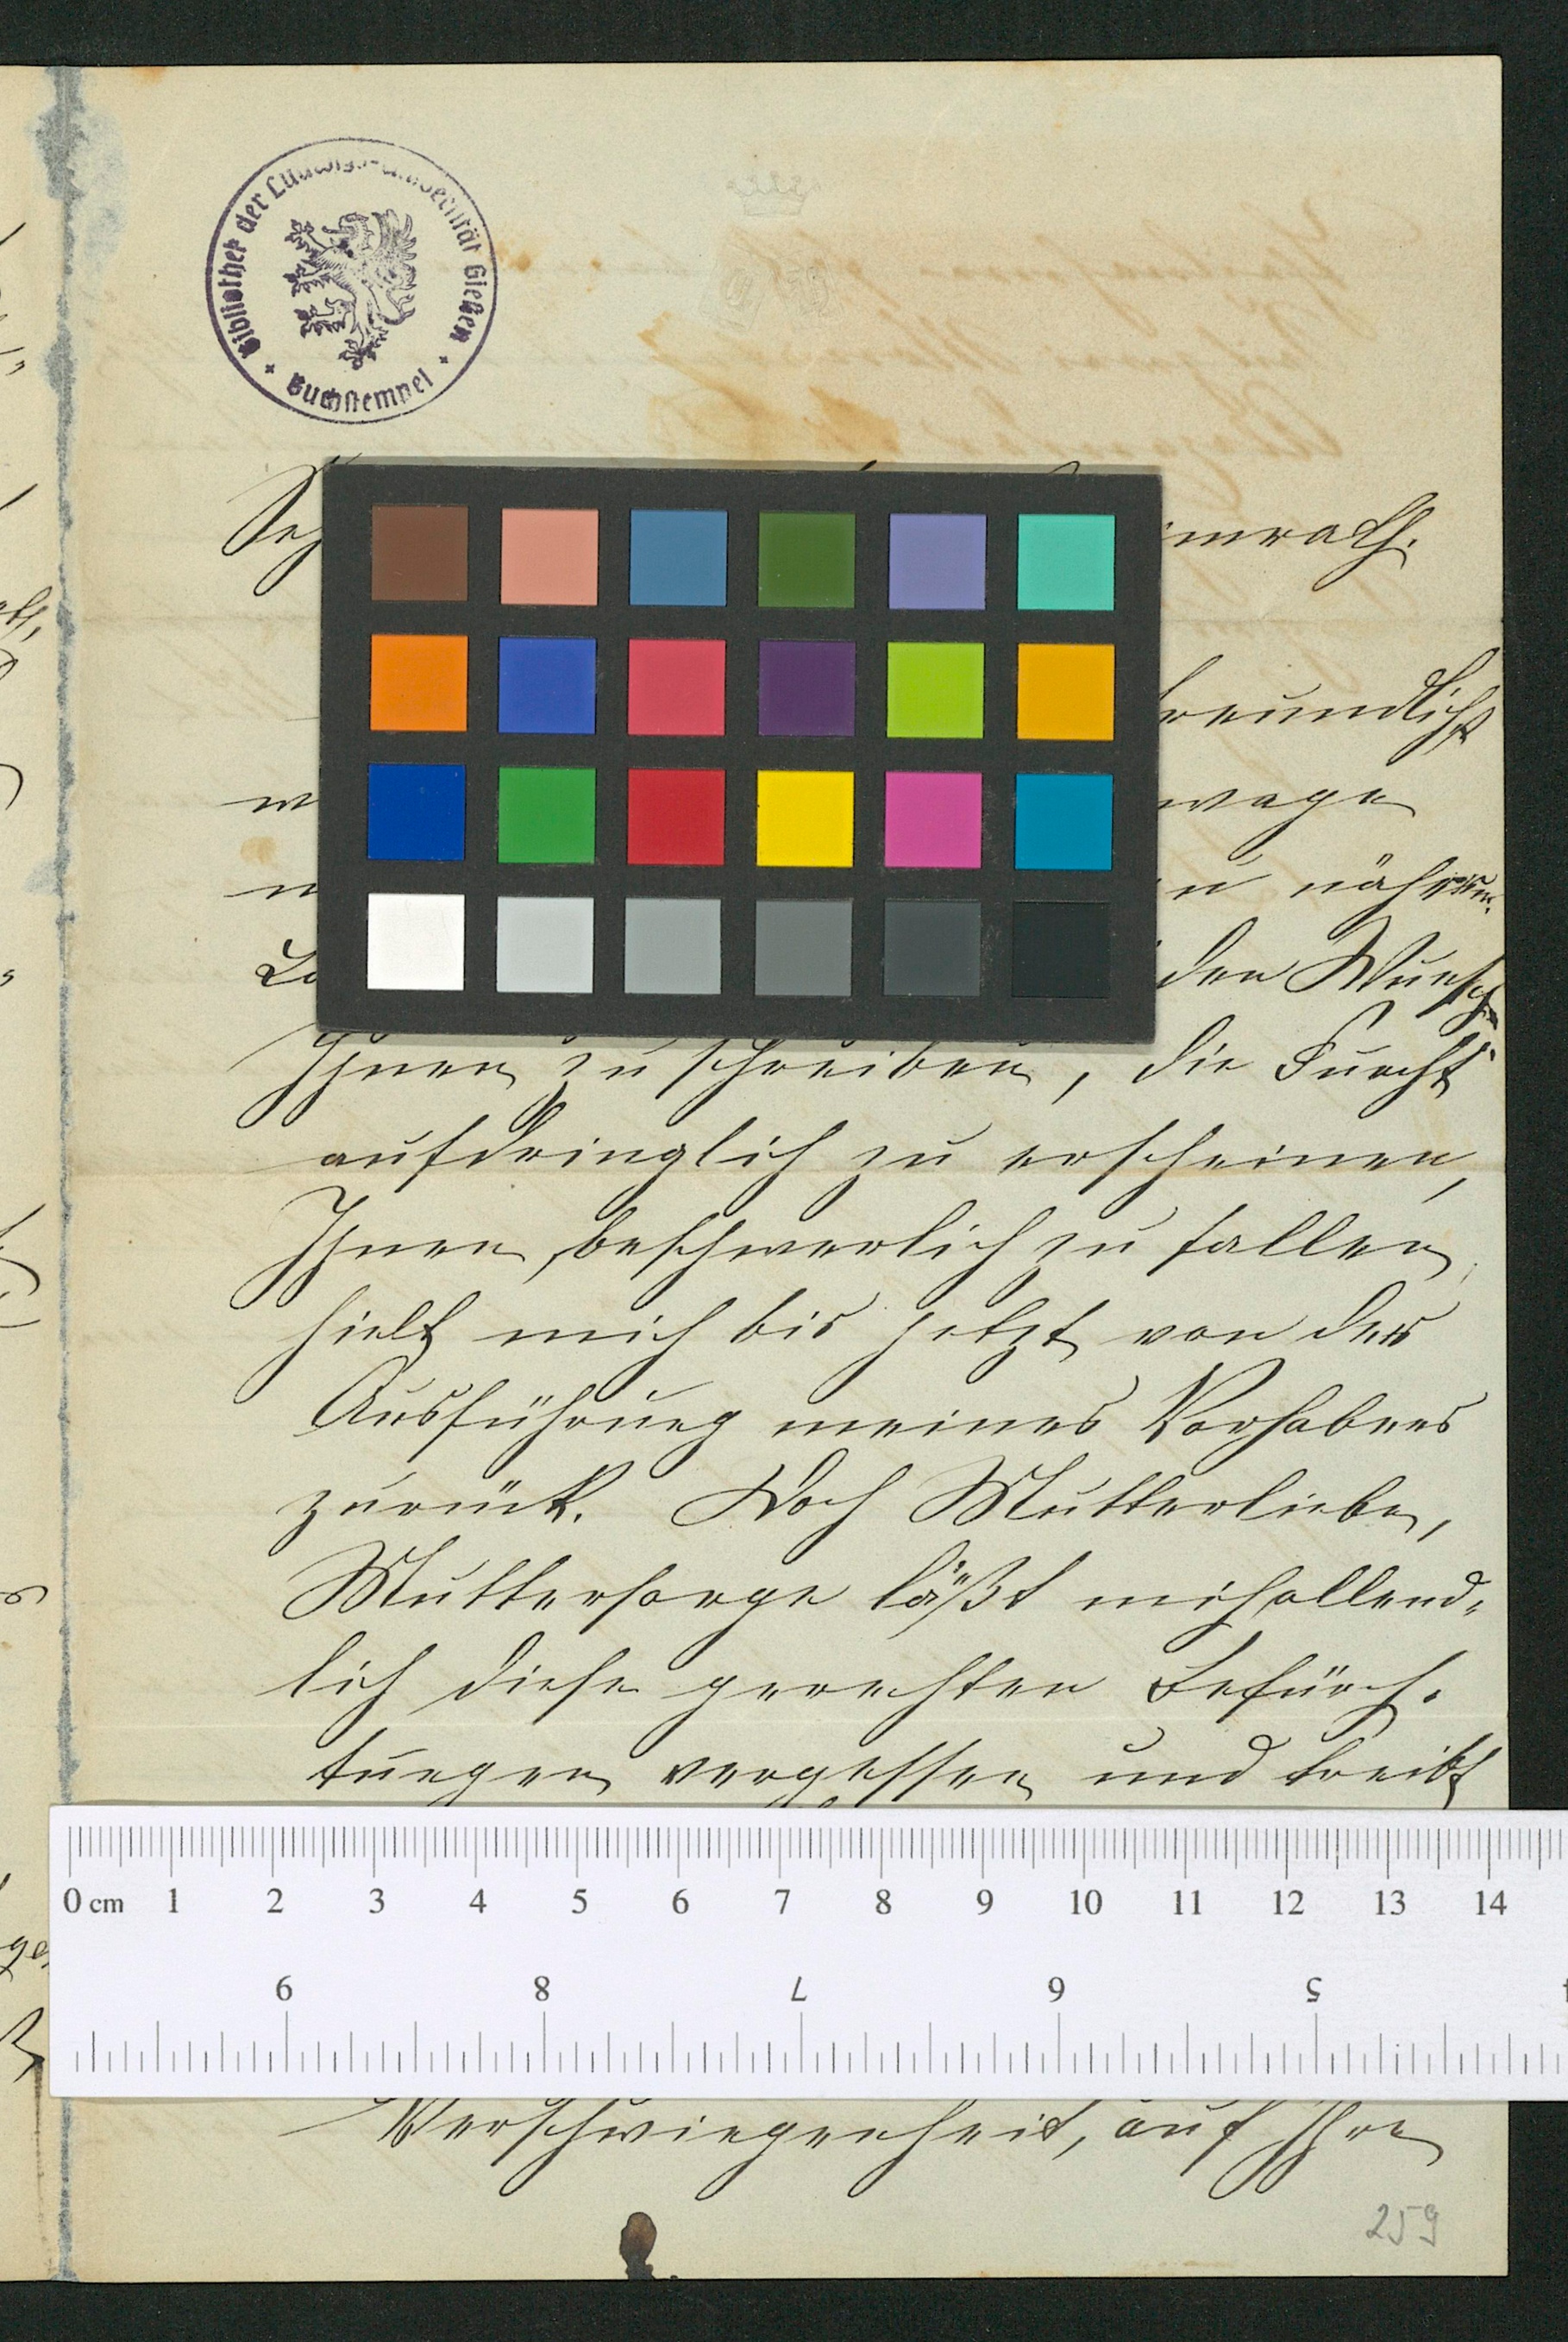 Bibliothek der Ludwigs-Universität Gießen
Buchstempel
imrath.
freundlichst
wage
zu näh
den Wunsch
Ihnen zu schreiben, die Furcht
aufdringlich zu erscheinen,
Ihnen beschwerlich zu fallen,
hielt mich bis jetzt von der
Ausführung meines Vorhabens
zurück. Doch Mutterliebe,
Muttersorge läßt mich allend-
lich diese gerechten Befürch-
tungen vergessen und treibt
0 cm 1 2 3 4 5 6 7 8 9 10 11 12 13 14
9 8 7 6 5
Verschwiegenheit, auf Ihre
259